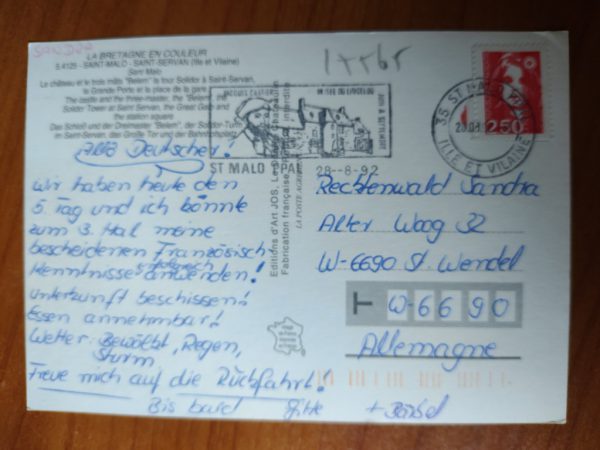 SANDRA
LA BRETAGNE EN COULEUR
S.4125 - SAINT-MALO - SAINT-SERVAN (Ille et Vilaine)
Saint Malo
Le château et le trois mâts "Belem" la tour Solidor à Saint-Servan,
la Grande Porte et la place de la gare
The castle and the three-master, the "Belem", the
Solidor Tower at Saint Servan, the Great Gate and
the station square
Das Schloß und der Dreimaster "Belem", der Solidor-Turm
in Saint-Servan, das Große Tor und der Bahnhofsplatz
Deutscher!
wir haben heute den
5. Tag und ich konnte
zum 3. Mal meine
bescheidenen Französisch
Kenntnisse anwenden!
Unterkunft beschissen!
Essen annehmbar!
Wetter: Bewölkt, Regen,
Sturm
Freue mich auf die Rückfahrt!
Bis bald Gitte +
Editions d'Art JOS, Le
Fabrication française
interdite
LA POSTE
JACQUES CARTIER
MUSEE DE LIMOELOU
JUIN A SEPTEMBRE
ST MALO PPAL
28-8-92
35 ST MALO PPAL
ILLE ET VILAINE
2,50
Rechtenwald Sandra
Alter Woog 32
W-6690 St. Wendel
W-6690
Allemagne